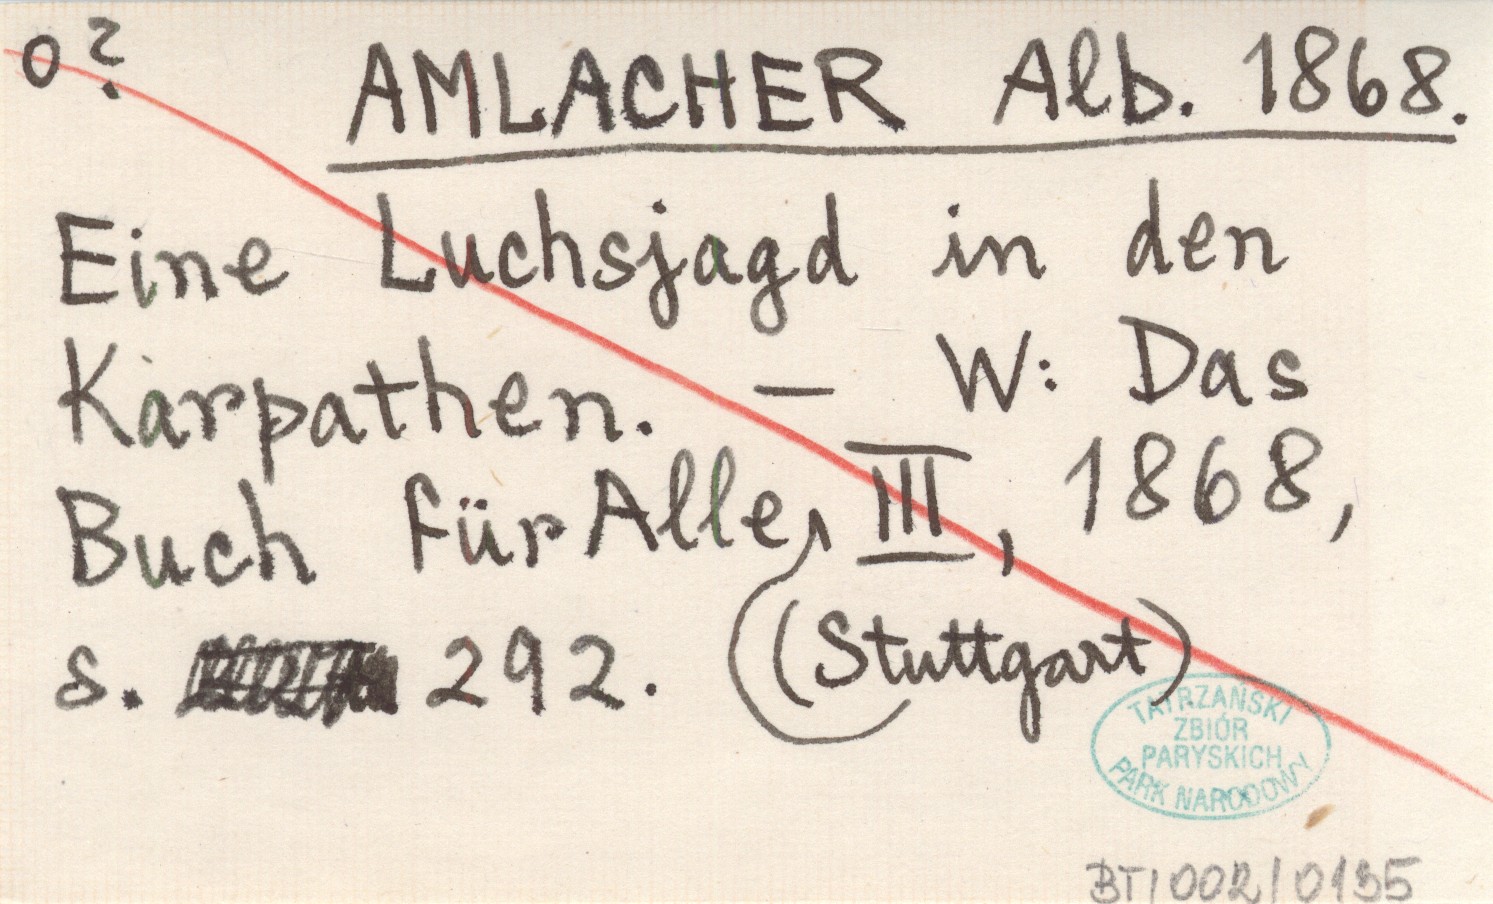 o ?
AMLACHER Alb. 1868.
Eine Luchsjagd in den
Karpathen. — W: Das
Buch für Alle, III, 1868,
(Stuttgart)
s. 292.
TATRZAŃSKI
ZBIÓR
PARYSKICH
PARK NARODOWY
BT/002/0135